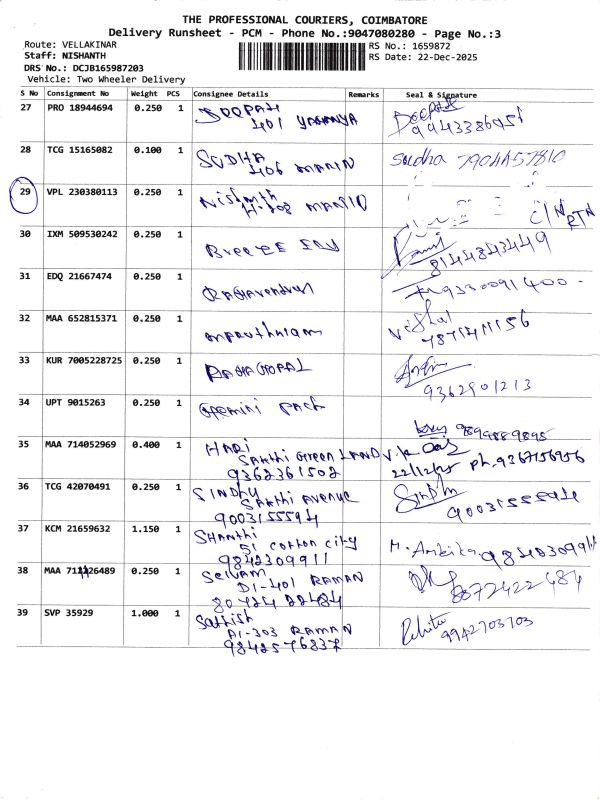 THE PROFESSIONAL COURIERS, COIMBATORE
Delivery Runsheet - PCM - Phone No.:9047080280 - Page No.:3
Route: VELLAKINAR
RS No.: 1659872
Staff: NISHANTH
RS Date: 22-Dec-2025
DRS No.: DCJB165987203
Vehicle: Two Wheeler Delivery
S No Consignment No Weight PCS Consignee Details Remarks Seal & Signature
27 PRO 18944694 0.250 1 DEEPAK
401
28 TCG 15165082 0.100 1 SUDHA Sudha
406 MARIN
29 VPL 230380113 0.250 1 Nishanth
H-208 MARIN RTN
30 IXM 509530242 0.250 1 Breeze
8144843449
31 EDQ 21667474 0.250 1 RAGHAVENDRAN 9330091400
32 MAA 652815371 0.250 1 Vishal
33 KUR 7005228725 0.250 1 RAJAGOPAL
9362901213
34 UPT 9015263 0.250 1 Gemini Pack
9894889895
35 MAA 714052969 0.400 1 HARI
Sakthi Green LAND
9362361502 22/12/25 ph, 9367156956
36 TCG 42070491 0.250 1 SINDHU Sindhu
Sakthi Avenue
9003155594 9003155594
37 KCM 21659632 1.150 1 SHANTHI
51 cotton city
9842309911
38 MAA 0.250 1 Selvam
D1-401 RAMAN
8072422484 8072422484
39 SVP 35929 1.000 1 Sathish
A1-303 RAMAN 9942703703
9842576837